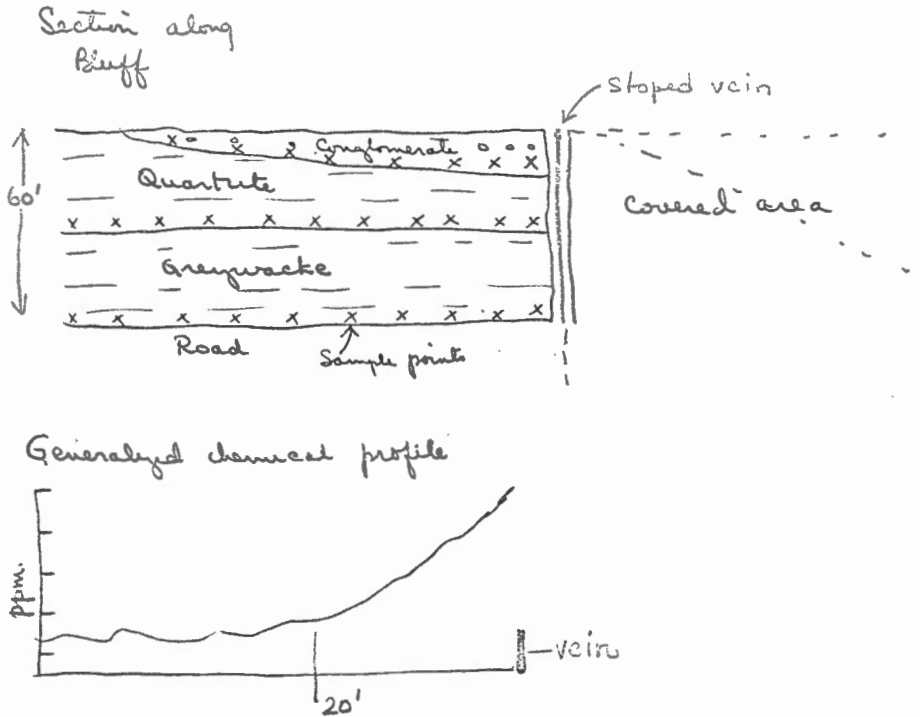 Section along
Bluff
stoped vein
Conglomerate
Quartzite
60'
covered area
Greywacke
Road
Sample points
Generalized chemical profile
ppm.
vein
20'